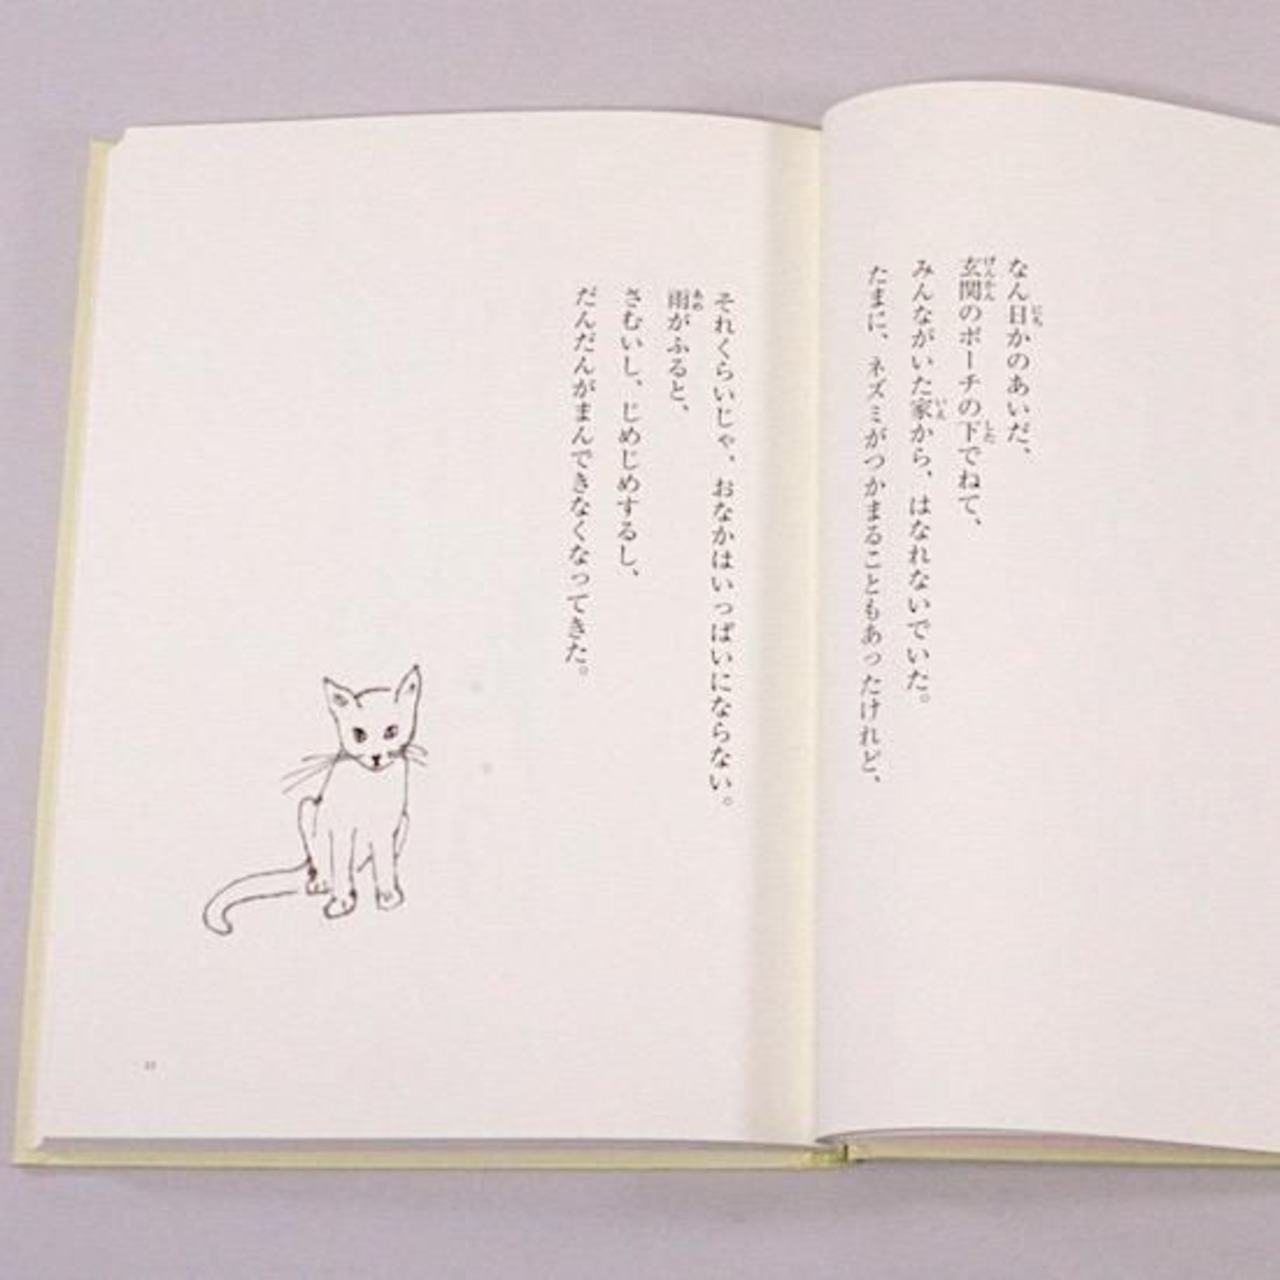 なん日かのあいだ、
玄関のポーチの下でねて、
みんながいた家から、はなれないでいた。
たまに、ネズミがつかまることもあったけれど、
それくらいじゃ、おなかはいっぱいにならない。
雨がふると、
さむいし、じめじめするし、
だんだんがまんできなくなってきた。